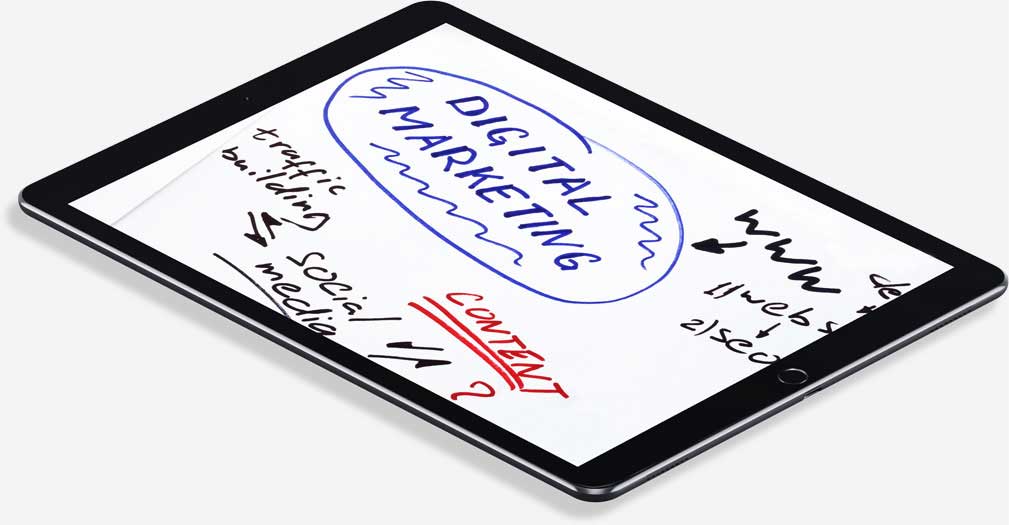 DIGITAL
MARKETING
traffic
building
social
media
CONTENT
www
1) web s
2) seo
de